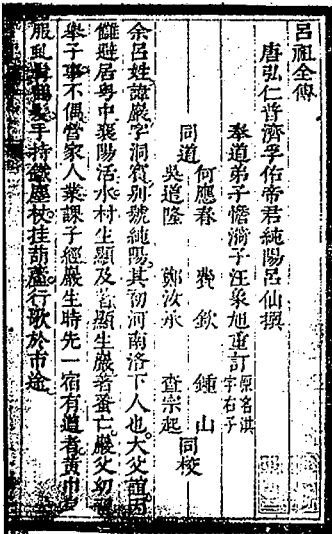 呂祖全傳
唐弘仁普濟孚佑帝君純陽呂仙撰
奉道弟子憺漪子汪象旭重訂 原名淇字右子
何應春 費欽 鍾山
同道 同校
吳道隆 鄭汝承 查宗起
余呂姓諱巖字洞賓別號純陽其初河南洛下人也。大父誼因
讎避居粵中襄陽活水村生顯及省顯生巖省蚤亡巖父幼
舉子事不偶當家人業課子經巖生時先一宿有道者黃巾
服虬髯鶴髮手持鐵塵杖挂葫蘆行歌於市途